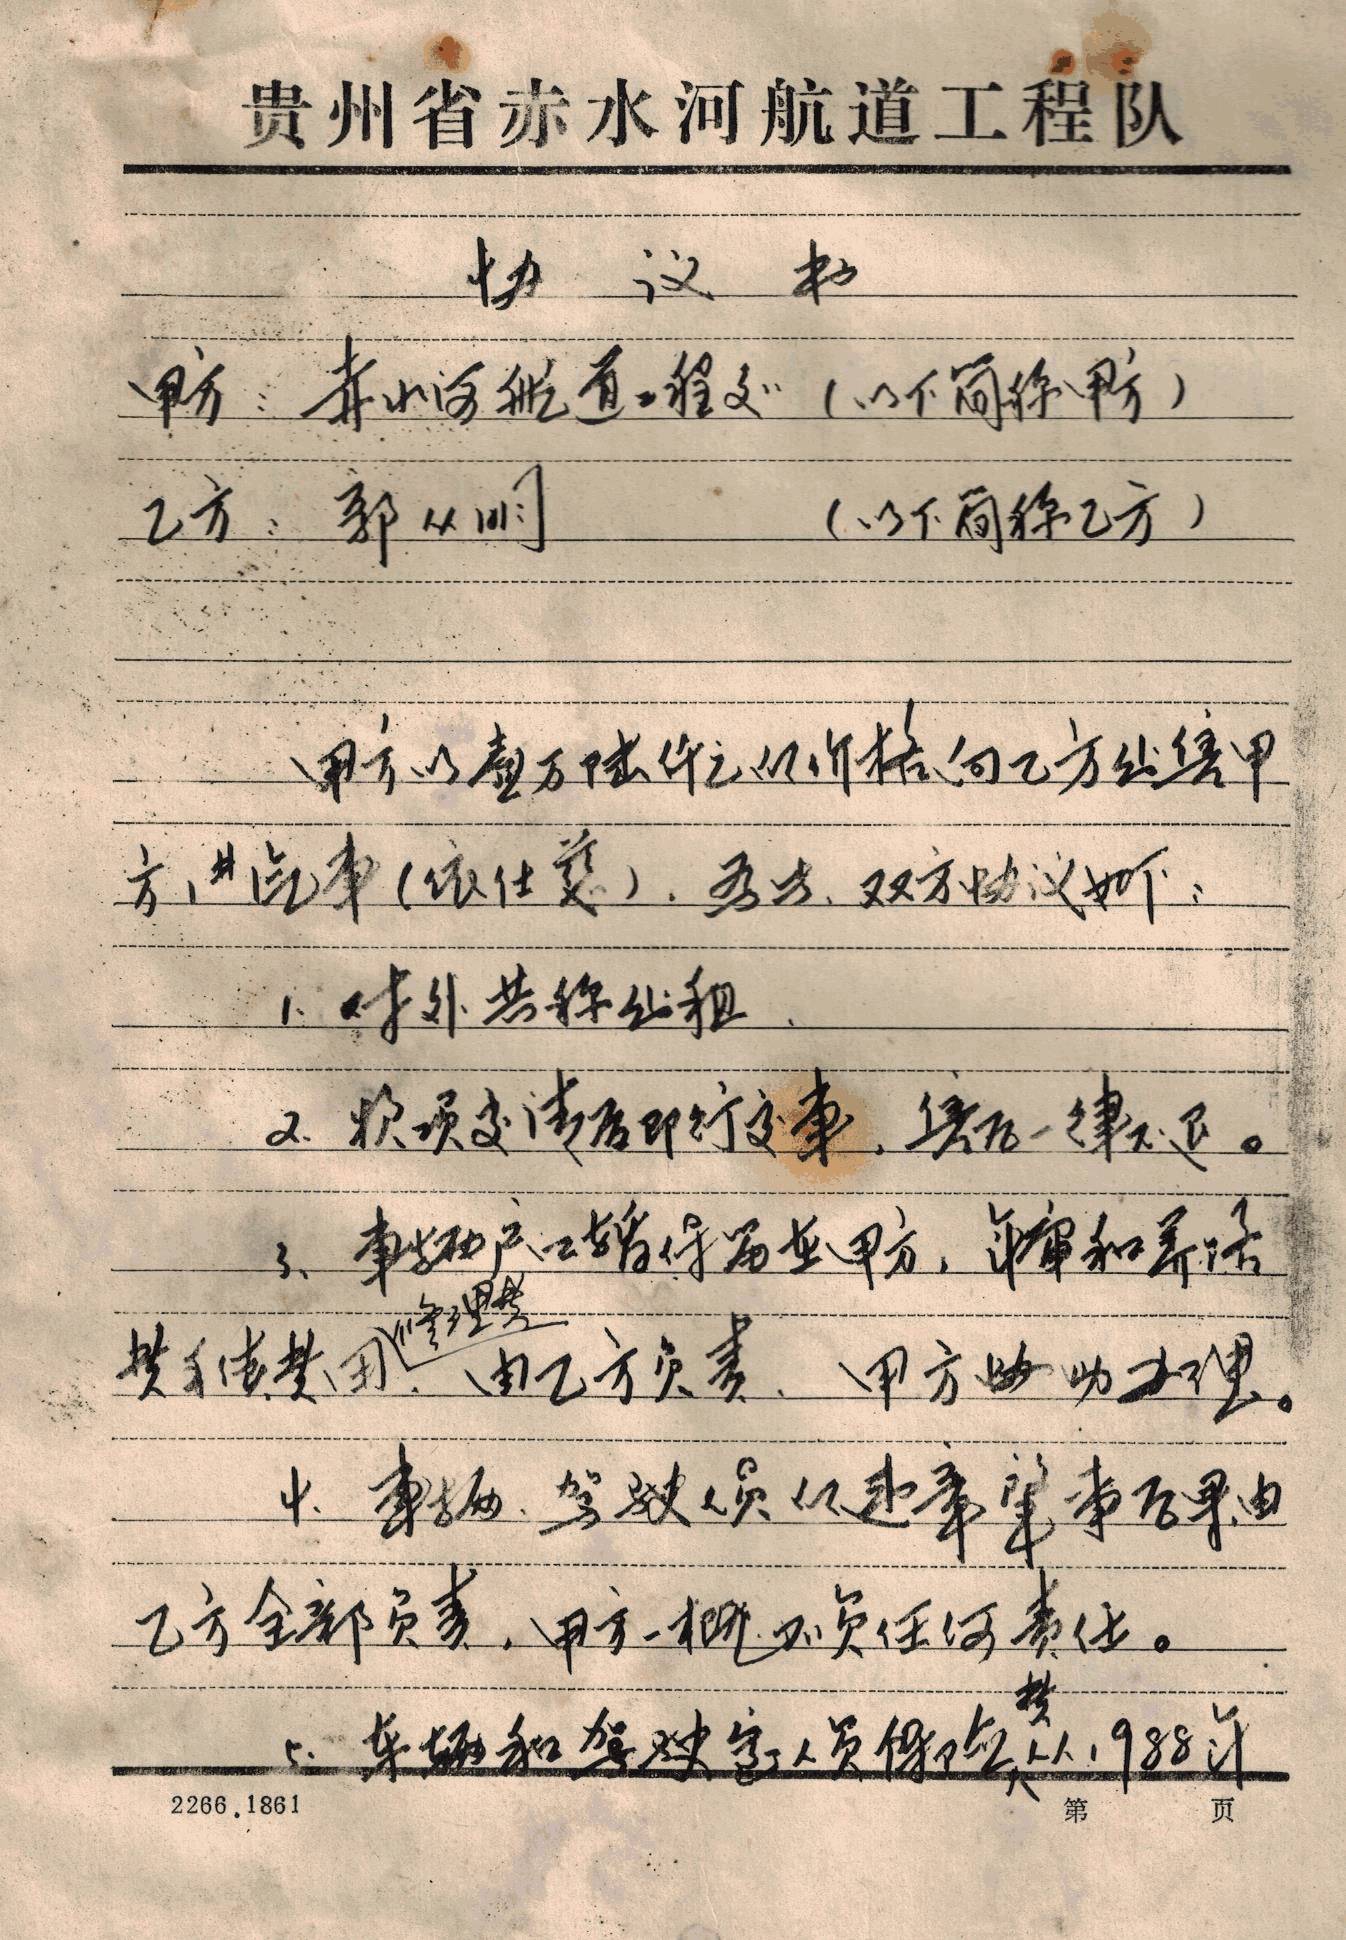 贵州省赤水河航道工程队
协议书
甲方：赤水河航道工程队（以下简称甲方）
乙方：郭从明（以下简称乙方）
甲方以壹万陆仟元的价格向乙方出售甲
方汽车（依仕兹），为此，双方协议如下：
1、对外共称出租、
2、款项交清后即行交车，售后一律不退。
3、车辆户口暂保留在甲方，年审和养路
费手续费用、修理费由乙方负责、甲方协助办理。
4、车辆、驾驶人员的违章肇事后果由
乙方全部负责，甲方一概不负任何责任。
5、车辆和驾驶室人员保险费从1988年
2266.1861 第 页